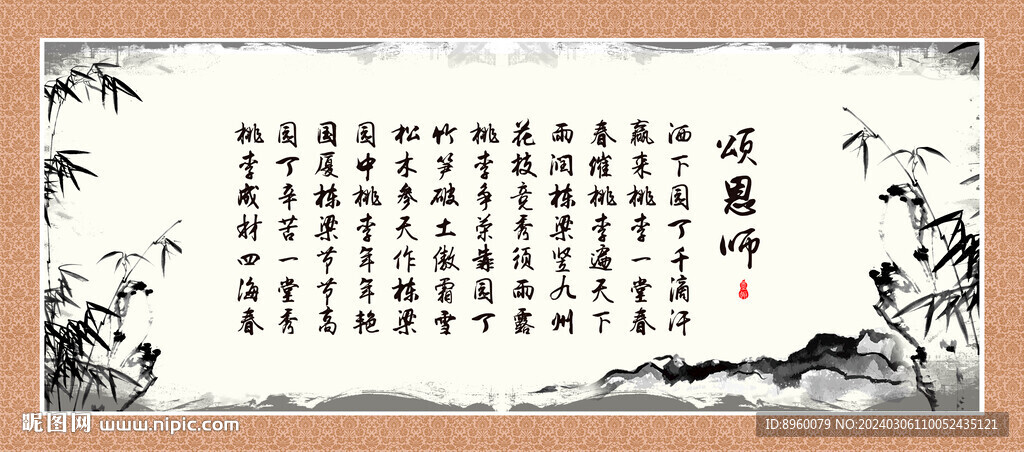 颂恩师
洒下园丁千滴汗
赢来桃李一堂春
春催桃李遍天下
雨润栋梁竖九州
花枝竞秀须雨露
桃李争荣靠园丁
竹笋破土傲霜雪
松木参天作栋梁
园中桃李年年艳
国厦栋梁节节高
园丁辛苦一堂秀
桃李成材四海春
昵图网 www.nipic.com
ID:8960079 NO:20240306110052435121